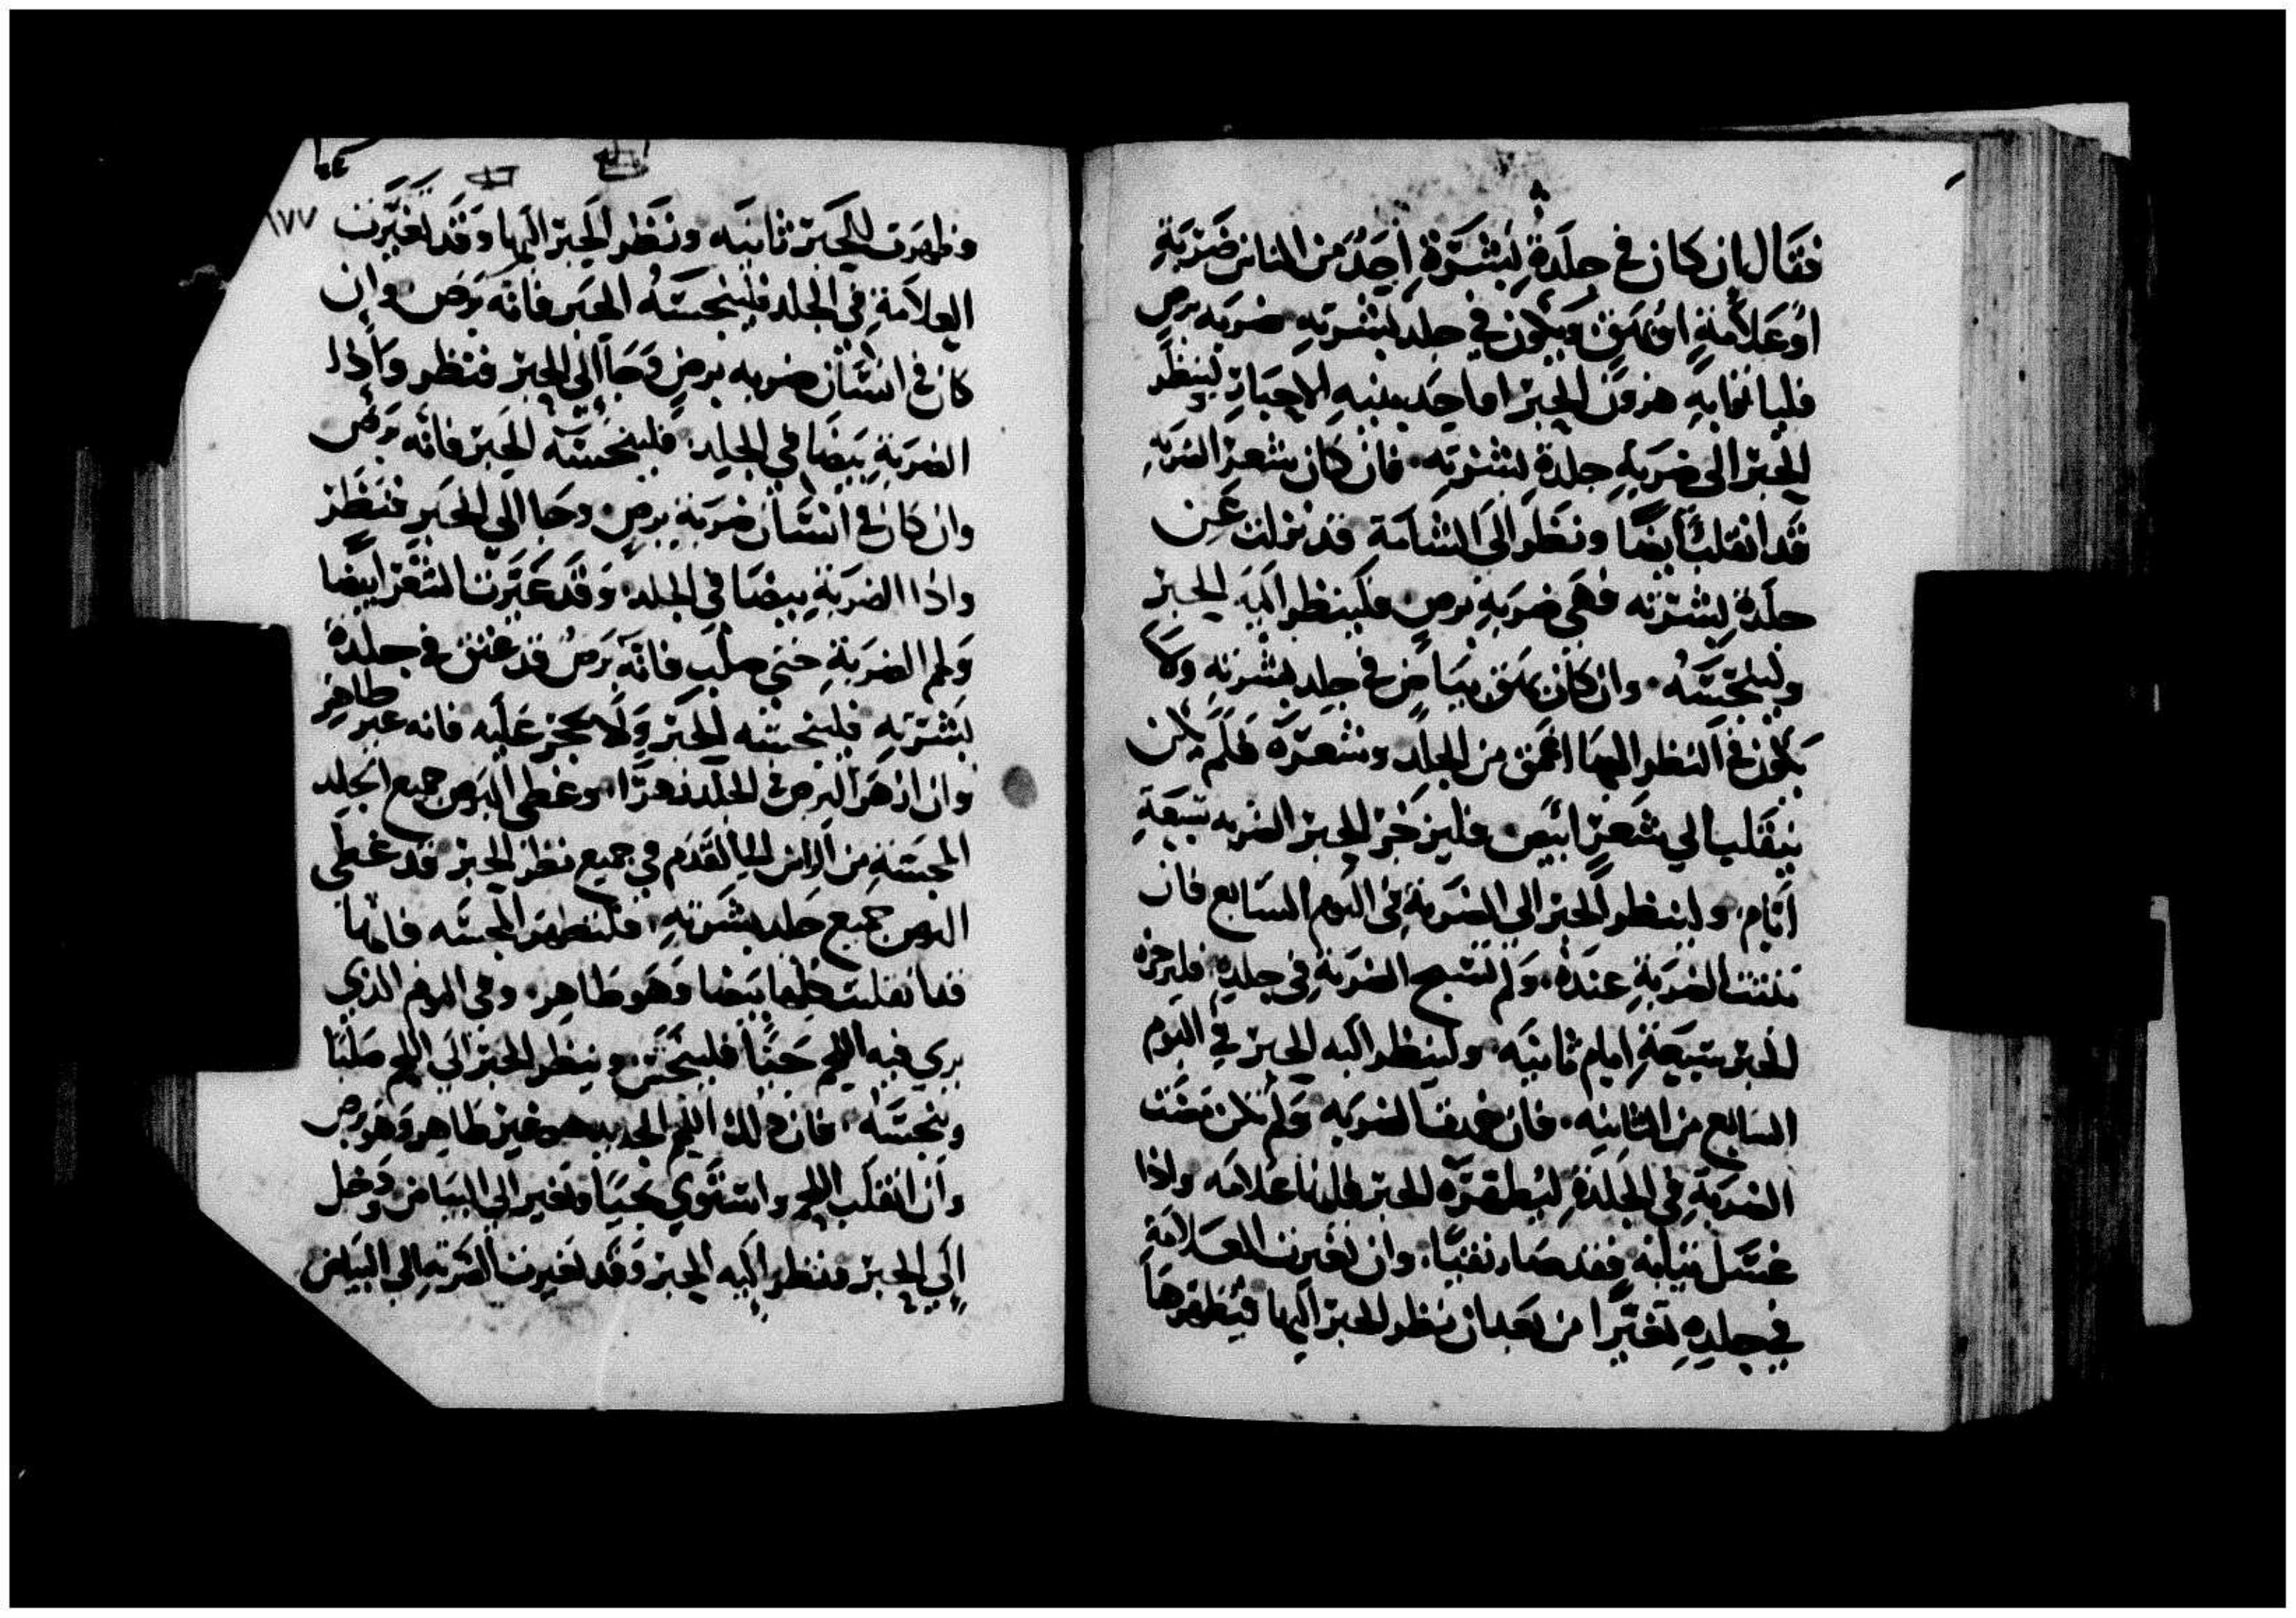 فقال ان كان في جلدة لبشرة احد من الناس ضربة
او علامة او بهق ويكون في جلد بشرته ضربه برص
فلياتوا به هرون الحبر او احد بنيه الاحبار لينظر
الحبر الى ضربة جلدة بشرته فان كان شعر الضربه
قد انقلب ابيضا ونظر الى الشامة قد نزلت عن
جلدة بشرته فهي ضربة برص فلينظر اليه الحبر
ولينجسه وان كان بهق بياض في جلد بشرته ولا
يكون في النظر اليها اعمق من الجلد وشعره فلم يكن
ينقلب الى شعر ابيض فليزجر الحبر الضربه سبعة
ايام ولينظر الحبر الى الضربة في اليوم السابع فان
ثبتت الضربة عنده ولم تسبح الضربة في جلده فليزجره
الحبر سبعة ايام ثانيه ولينظر اليه الحبر في اليوم
السابع من الثانيه فان خمدت الضربه ولم تكن مضت
الضربة في الجلدة ليطهره الحبر فانها علامه واذا
غسل ثيابه فقد صار نقيا وان تغيرت العلامة
في جلده تغيرا من بعد ان نظر الحبر اليها فيطهرها
وظهرت للحبر ثانيه ونظر الحبر اليها وقد تغيرت
١٧٧
العلامة في الجلد فلينجسه الحبر فانه برص وان
كان في انسان ضربه برص وجا الى الحبر فنظر واذا
الضربة بيضا في الجلد فلينجسه الحبر فانه برص
وان كان في انسان ضربة برص وجا الى الحبر فنظر
واذا الضربة بيضا في الجلد وقد غيرت الشعر ابيضا
ولحم الضربة حتى صلب فانه برص قد عتق في جلدة
بشرته فلينجسه الحبر ولا يحجز عليه فانه غير طاهر
وان ازهر البرص في الجلد زهرا وغطى البرص جميع الجلد
المجسة من الراس الى القدم في جميع نظر الحبر قد غطى
البرص جميع جلد بشرته فلتطهر المجسه فانها
قد انقلبت كلها بيضا وهو طاهر وفي اليوم الذي
يرى فيه اللحم حيا فلينجس وينظر الحبر الى اللحم صلبا
وينجسه فان ذلك اللحم الحديد هو غير طاهر وهو برص
وان انقلب اللحم واستوى نحيا وتغير الى البياض ودخل
الى الحبر فنظر اليه الحبر وقد تغيرت الضربة الى البياض